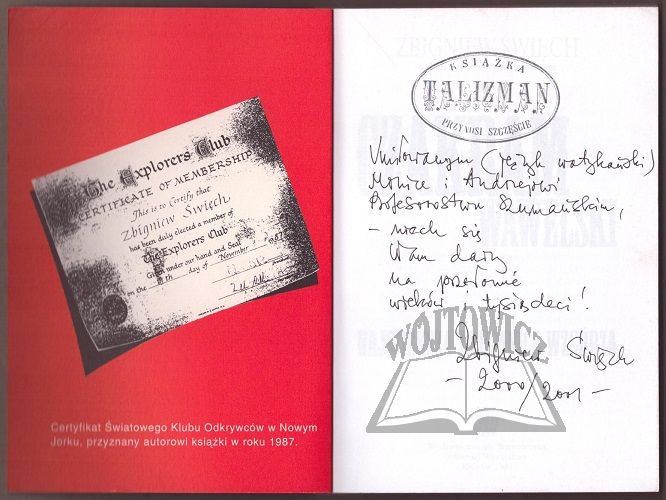 The Explorers Club
CERTIFICATE OF MEMBERSHIP
This is to Certify that
Zbigniew Święch
has been duly elected a member of
The Explorers Club
Given under our hand and Seal
on the th day of November
Certyfikat Światowego Klubu Odkrywców w Nowym
Jorku, przyznany autorowi książki w roku 1987.
ZBIGNIEW ŚWIĘCH
KSIĄŻKA
TALIZMAN
PRZYNOSI SZCZĘŚCIE
Umiłowanym (język watykański)
Monice i Andrzejowi
Profesorostwu Szumańskim,
- niech się
Wam darzy
na przełomie
wieków i tysiącleci!
WÓJTOWICZ
Zbigniew Święch
- 2000/2001 -
WAWELSKI